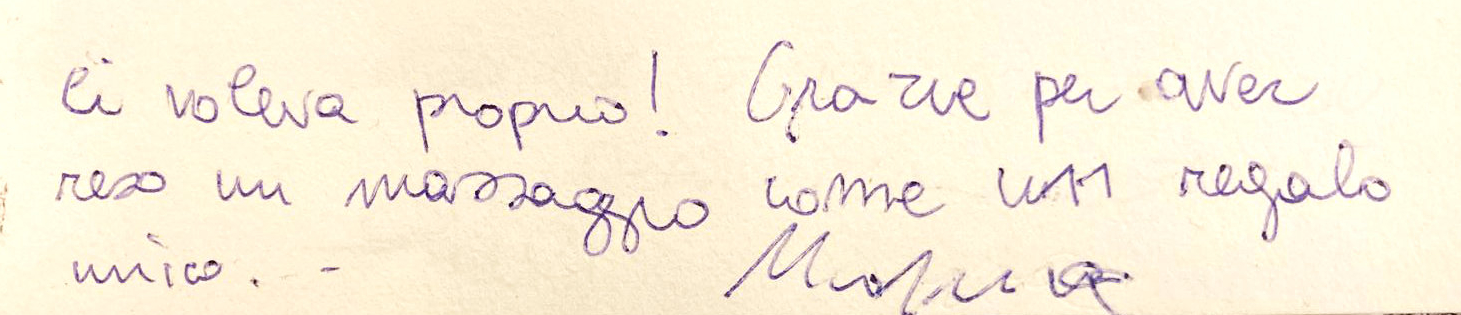 Ci voleva proprio! Grazie per aver
reso un massaggio come un regalo
unico. -